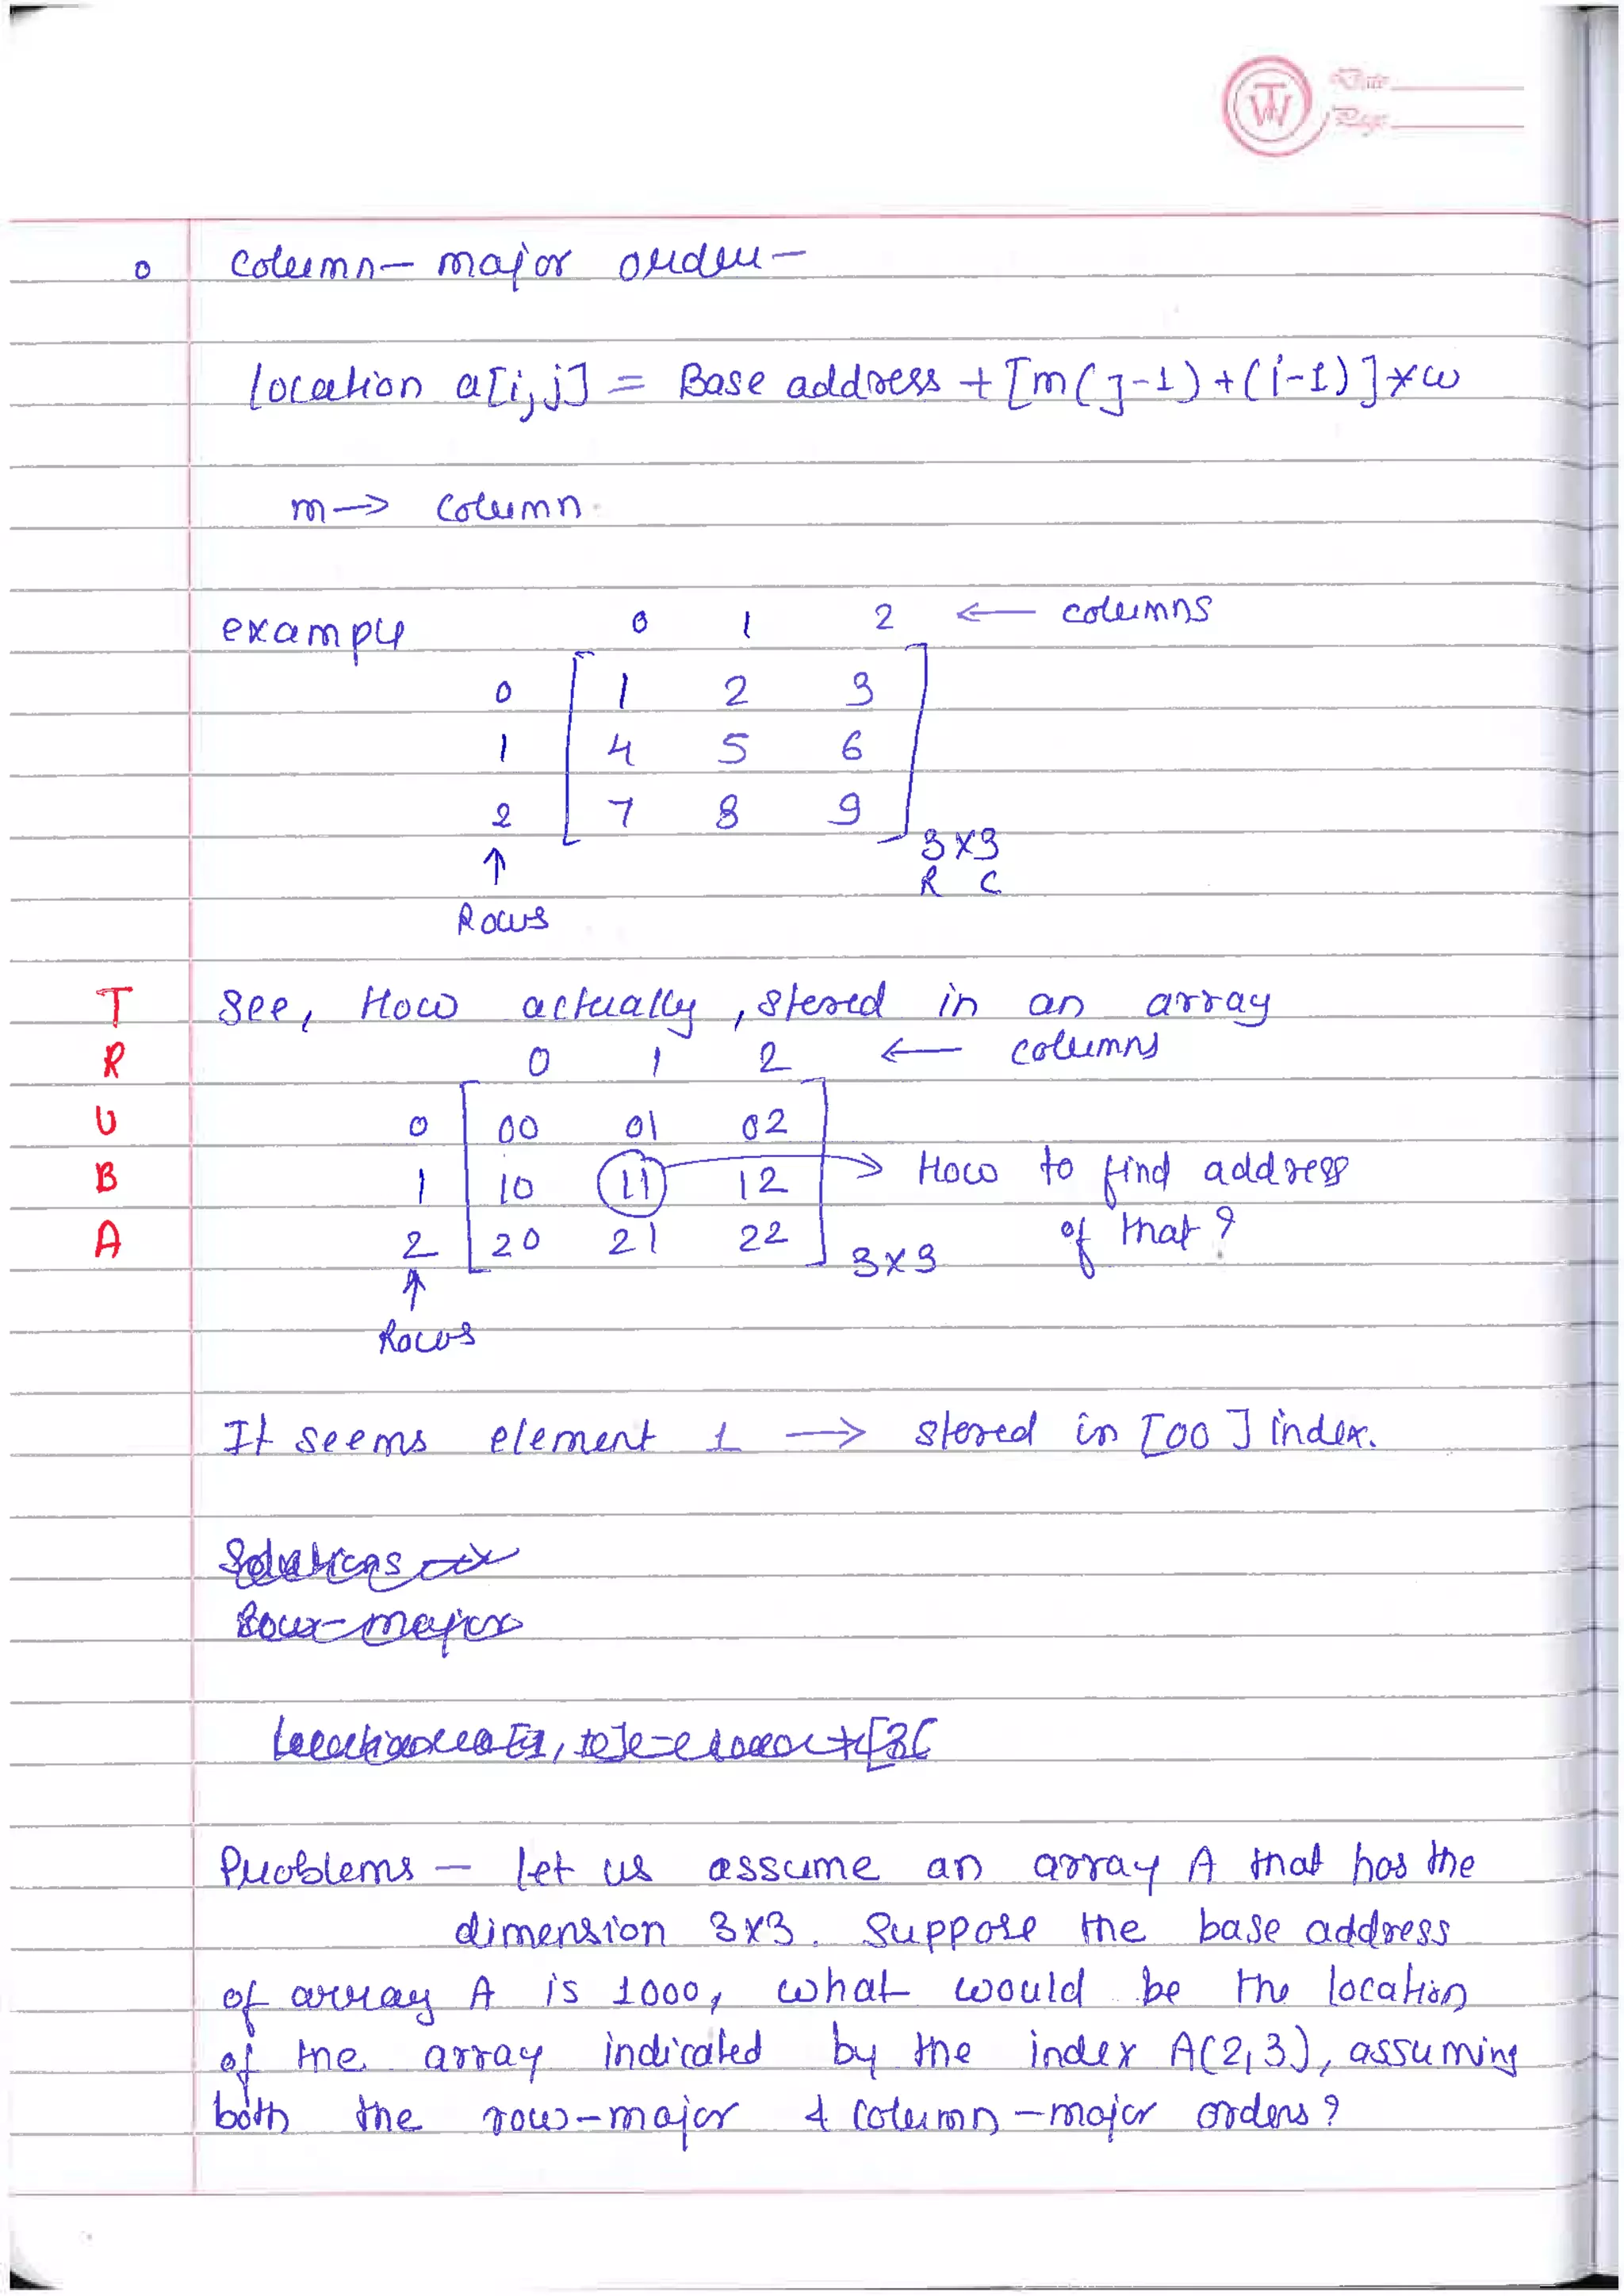 TW Date
Page
o Column- major order -
location a[i,j] = Base address + [m(j-1)+(i-1)]*w
m → Column
example 0 1 2 ← columns
0 1 2 3
1 4 5 6
2 7 8 9
3x3
↑ R C
Rows
T See, How actually, stored in an array
R 0 1 2 ← columns
U 0 00 01 02
B 1 10 11 12 → How to find address
A 2 20 21 22 3x3 of that ?
↑
Rows
It seems element 1 → stored in [00] index.
Solutions
Row-major
Problems - let us assume an array A that has the
dimension 3x3. Suppose the base address
of array A is 1000, what would be the location
of the array indicated by the index A(2,3), assuming
both the row-major & column-major orders ?